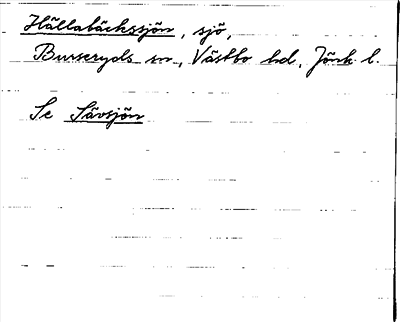 Hällabäckssjön, sjö,
Burseryds sn., Västbo hd, Jönk. l.
Se Sävsjön